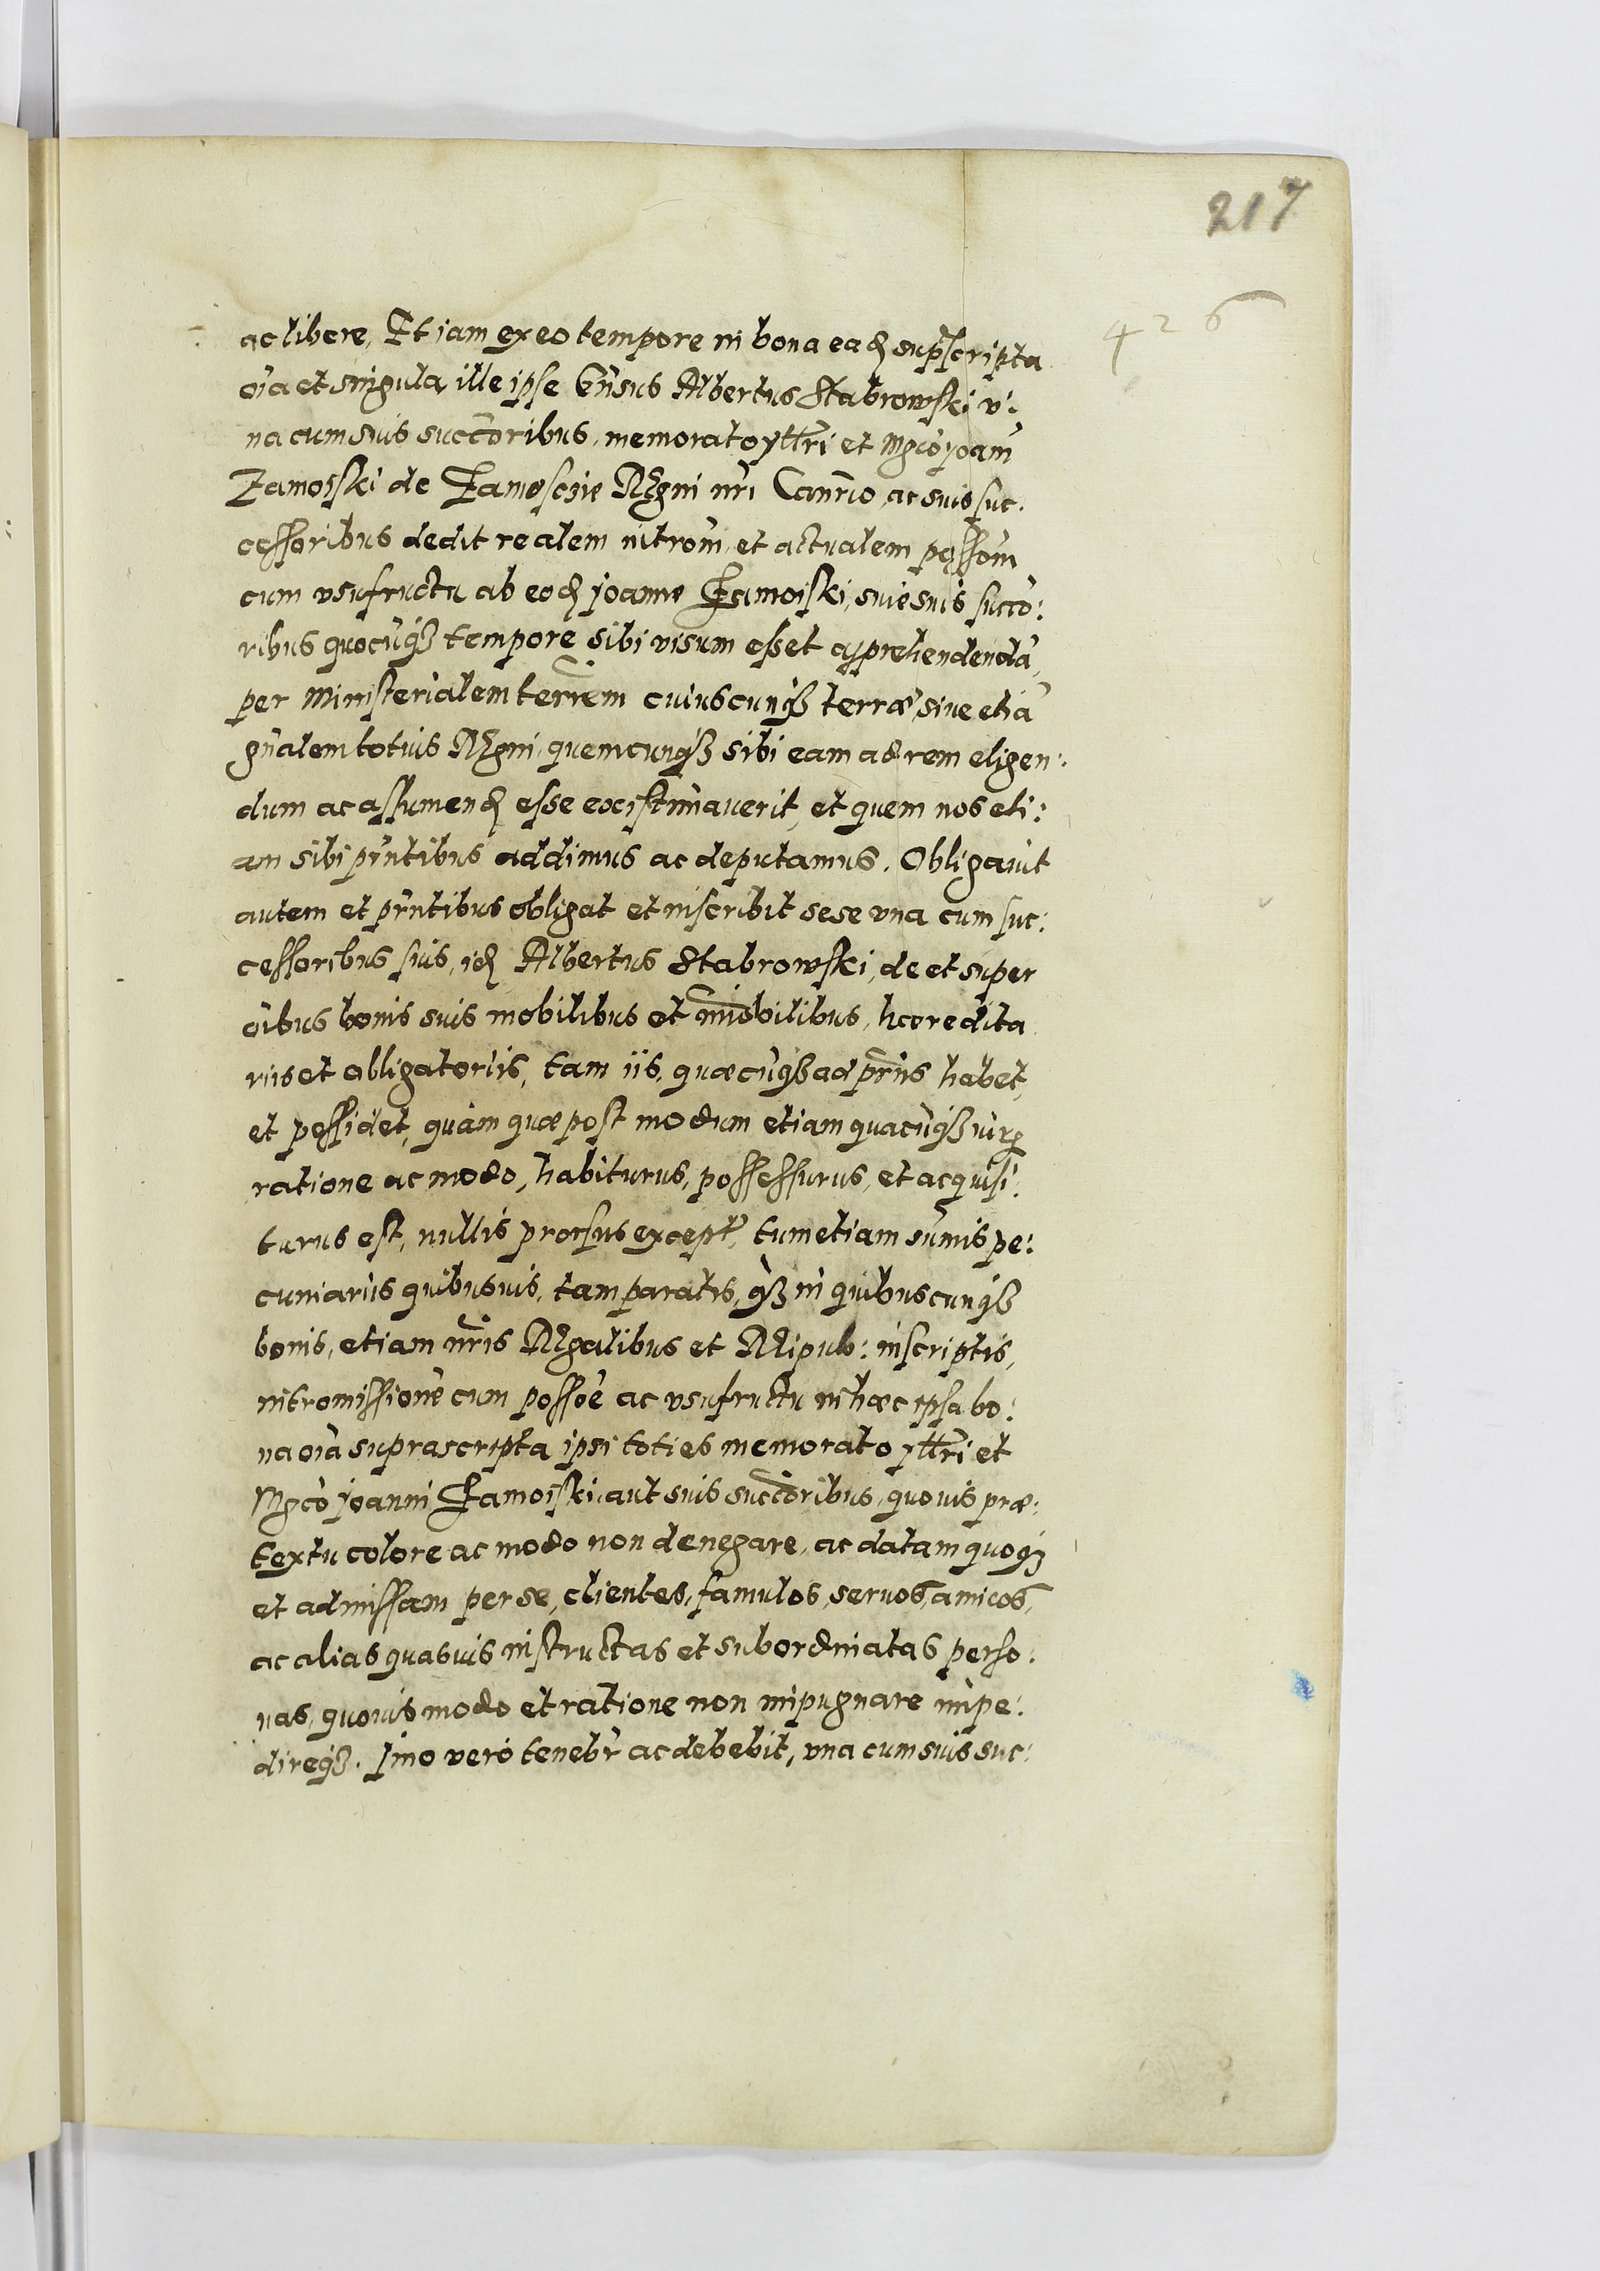 217
426
ac libere, Et iam ex eo tempore in bona eadꝫ supscripta
oĩa et singula, ille ipse Gñsus Albertus Stabrowski v:
na cum suis succõribus, memorato yllr̃i et Mgc̃o joañi
Zamoiski de Zamoscie Rgni nr̃i Canr̃io, ac suis suc:
cessoribus dedit realem introm̃ et actualem possom̃
cum vsufructu ab eodꝫ joanne Zamoiski, siue suis succõ:
ribus quocũqꝫ tempore sibi visum esset apprehendendã,
per Ministerialem terrẽm cuiuscunqꝫ terræ, siue etiã
gñalem totius Rgni, quemcunqꝫ sibi eam ad rem eligen:
dum ac assumendꝫ esse existimauerit, et quem nos eti:
am sibi pr̃ntibus addimus ac deputamus. Obligauit
autem et pr̃ntibus obligat et inscribit sese vna cum suc:
cessoribus suis, idꝫ Albertus Stabrowski, de et super
oĩbus bonis suis mobilibus et im̃obilibus, hæredita
riis et obligatoriis, tam iis, quæcũqꝫ ad pr̃ns habet,
et possidet, quàm quæ post modum etiam quacũqꝫ
ratione ac modo, habiturus, possessurus, et acquisi:
turus est, nullis prorsus except, tum etiam sum̃is pe:
cuniariis quibusuis, tam paratis, qꝫ in quibuscunqꝫ
bonis, etiam nr̃is Rgalibus et Reipub: inscriptis,
intromissionẽ cum possoẽ ac vsufructu in hæc ipsa bo:
na oĩa suprascripta ipsi toties memorato yllr̃i et
Mgc̃o joanni Zamoiski, aut suis succõribus, quouis præ:
textu colore ac modo non denegare, ac datam quoqꝫ
et admissam per se, clientes, famulos, seruos, amicos,
ac alias quasuis instructas et subordinatas perso:
nas, quouis modo et ratione non impugnare impe:
direqꝫ. Imo verò tenebr̃ ac debebit, vna cum suis suc: